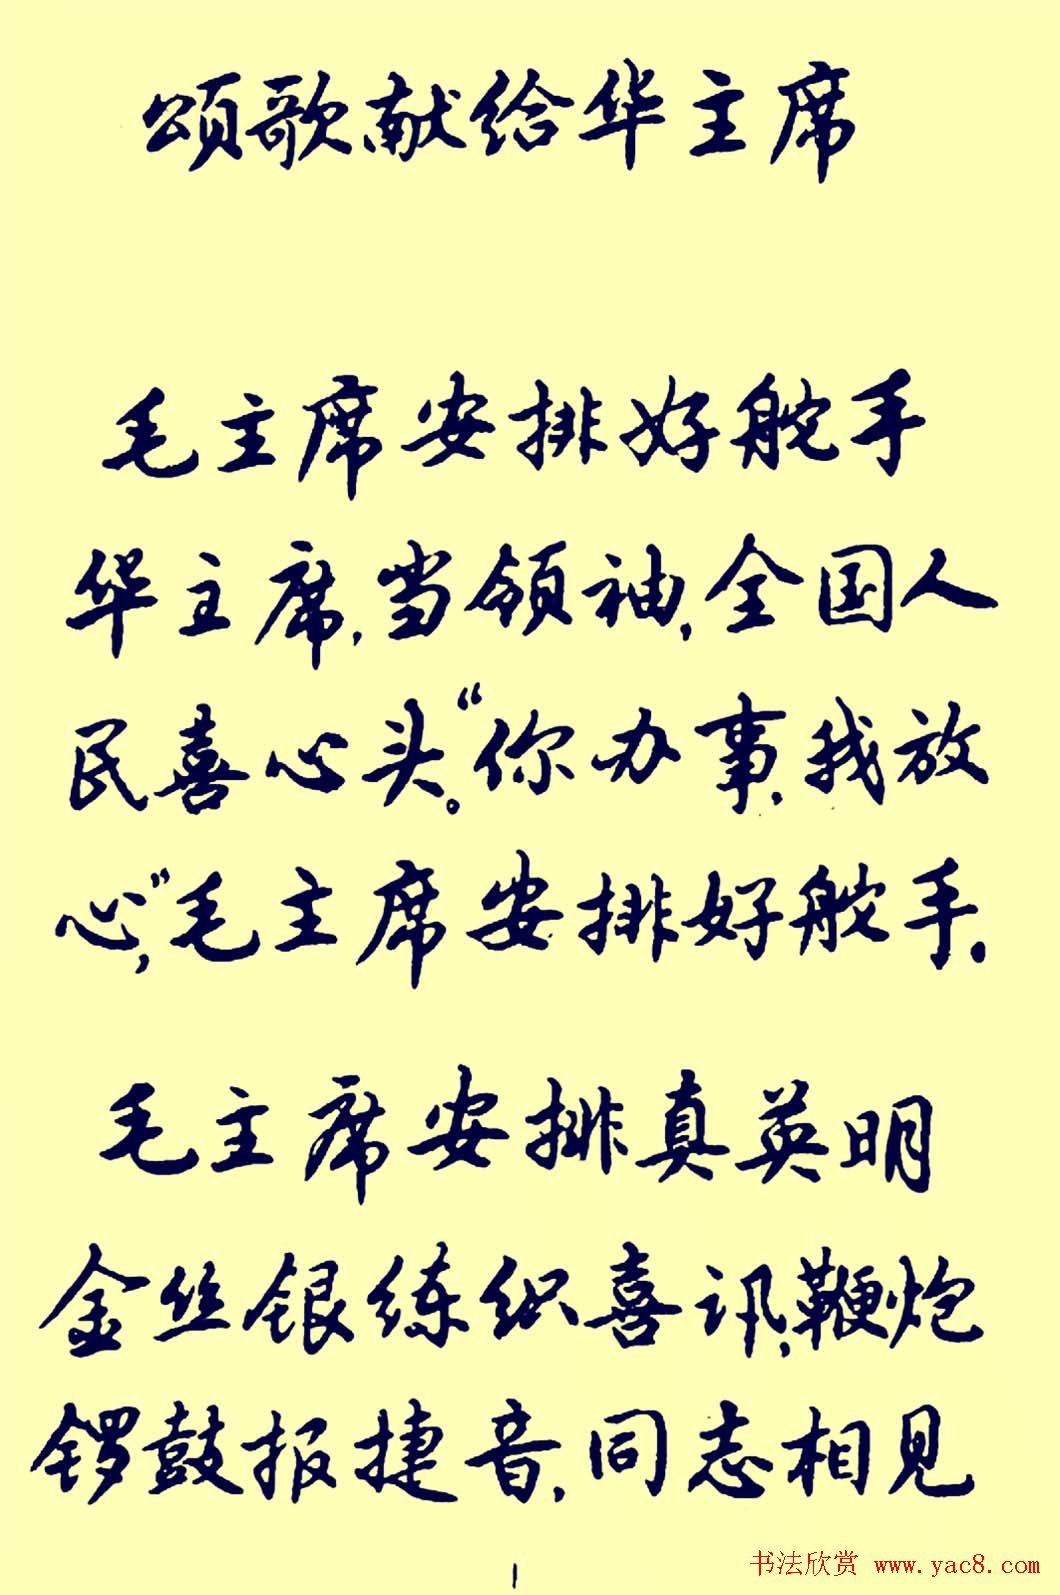 颂歌献给华主席
毛主席安排好舵手
华主席,当领袖,全国人
民喜心头。“你办事,我放
心,”毛主席安排好舵手.
毛主席安排真英明
金丝银练织喜讯,鞭炮
锣鼓报捷音,同志相见
1
书法欣赏 www.yac8.com